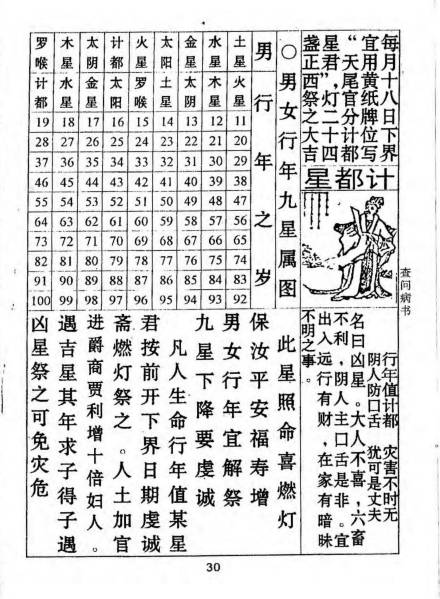 每月十八日下界
宜用黄纸牌位写
“天尾官分计都
星君”，灯二十四
盏正西祭之大吉
计都星
行年值计都 灾害不时无
阴人防口舌 犹可是丈夫
名曰凶星。大人不喜，六畜
不利，阴人主口舌是非。宜
出入远行有财，在家有暗昧
不明之事。
查问病书
○男女行年九星属图
男行年之岁
罗喉 木星 太阴 计都 火星 太阴 金星 水星 土星
计都 水星 金星 太阳 罗喉 土星 太阳 木星 火星
19 18 17 16 15 14 13 12 11
28 27 26 25 24 23 22 21 20
37 36 35 34 33 32 31 30 29
46 45 44 43 42 41 40 39 38
55 54 53 52 51 50 49 48 47
64 63 62 61 60 59 58 57 56
73 72 71 70 69 68 67 66 65
82 81 80 79 78 77 76 75 74
91 90 89 88 87 86 85 84 83
100 99 98 97 96 95 94 93 92
此星照命喜燃灯
保汝平安福寿增
男女行年宜解祭
九星下降要虔诚
凡人生命行年值某星
君按前开下界日期虔诚
斋燃灯祭之。人土加官
进爵商贾利增十倍妇人。
遇吉星其年求子得子遇
凶星祭之可免灾危
30